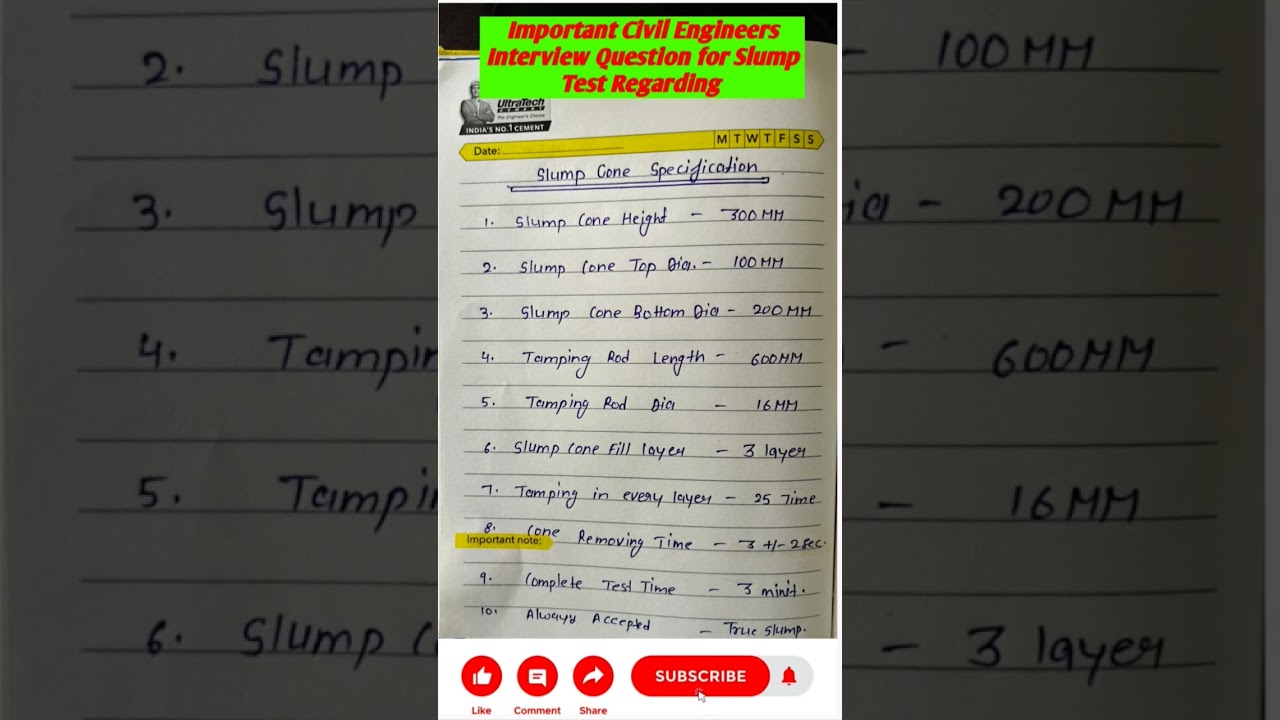 Important Civil Engineers
Interview Question for Slump
Test Regarding
UltraTech
CEMENT
The Engineer's Choice
INDIA'S NO.1 CEMENT
Date:
M T W T F S S
Slump Cone Specification
1. Slump Cone Height - 300 MM
2. Slump Cone Top Dia. - 100 MM
3. Slump Cone Bottom Dia - 200 MM
4. Tamping Rod Length - 600MM
5. Tamping Rod Dia - 16 MM
6. Slump Cone Fill layer - 3 layer
7. Tamping in every layer - 25 Time
8. Cone Removing Time - 3 +/- 2 Sec.
Important note:
9. Complete Test Time - 3 minit.
10. Always Accepted - True Slump.
Like
Comment
Share
SUBSCRIBE
2. Slump
- 100 MM
3. Slump
ia - 200 MM
4. Tampin
- 600 MM
5. Tampin
- 16 MM
6. Slump C
- 3 layer